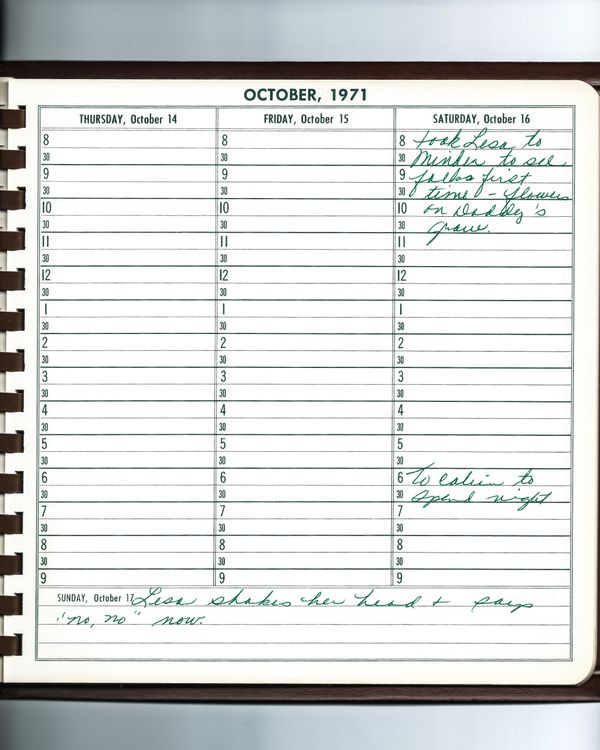 OCTOBER, 1971
THURSDAY, October 14
8
30
9
30
10
30
11
30
12
30
1
30
2
30
3
30
4
30
5
30
6
30
7
30
8
30
9
FRIDAY, October 15
8
30
9
30
10
30
11
30
12
30
1
30
2
30
3
30
4
30
5
30
6
30
7
30
8
30
9
SATURDAY, October 16
8 took Lesa to
30 Minden to see
9 folks first
30 time - flowers
10 on Daddy's
30 grave.
11
30
12
30
1
30
2
30
3
30
4
30
5
30
6 To cabin to
30 spend night
7
30
8
30
9
SUNDAY, October 17 Lesa shakes her head + says
"no, no" now.